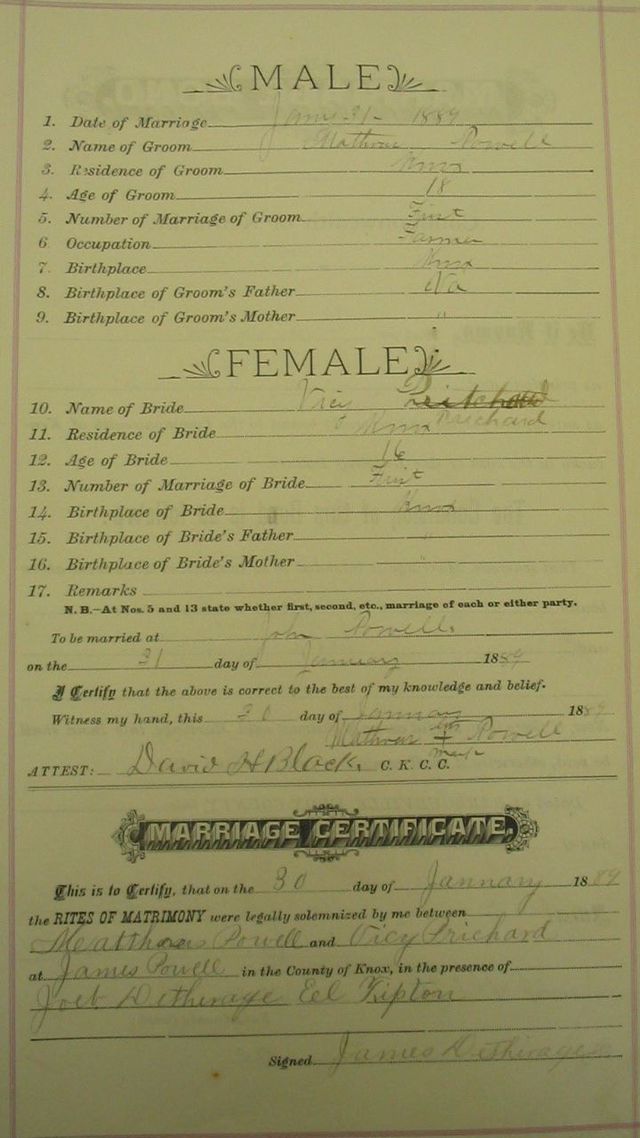 MALE
1. Date of Marriage Jany 31 - 1889
2. Name of Groom Mathew Powell
3. Residence of Groom Knox
4. Age of Groom 18
5. Number of Marriage of Groom First
6. Occupation Farmer
7. Birthplace Knox
8. Birthplace of Groom's Father Va
9. Birthplace of Groom's Mother "
FEMALE
10. Name of Bride Vici Pritchard
11. Residence of Bride Knox Prichard
12. Age of Bride 16
13. Number of Marriage of Bride First
14. Birthplace of Bride Knox
15. Birthplace of Bride's Father "
16. Birthplace of Bride's Mother "
17. Remarks
N. B.—At Nos. 5 and 13 state whether first, second, etc., marriage of each or either party.
To be married at John Powells
on the 31 day of January 1889
I Certify that the above is correct to the best of my knowledge and belief.
Witness my hand, this 30 day of January 1889
Mathew his + mark Powell
ATTEST: David H Black, C. K. C. C.
MARRIAGE CERTIFICATE.
This is to Certify, that on the 30 day of January 1889
the RITES OF MATRIMONY were legally solemnized by me between
Powell and Vicy Prichard
at James Powell in the County of Knox, in the presence of
Signed James